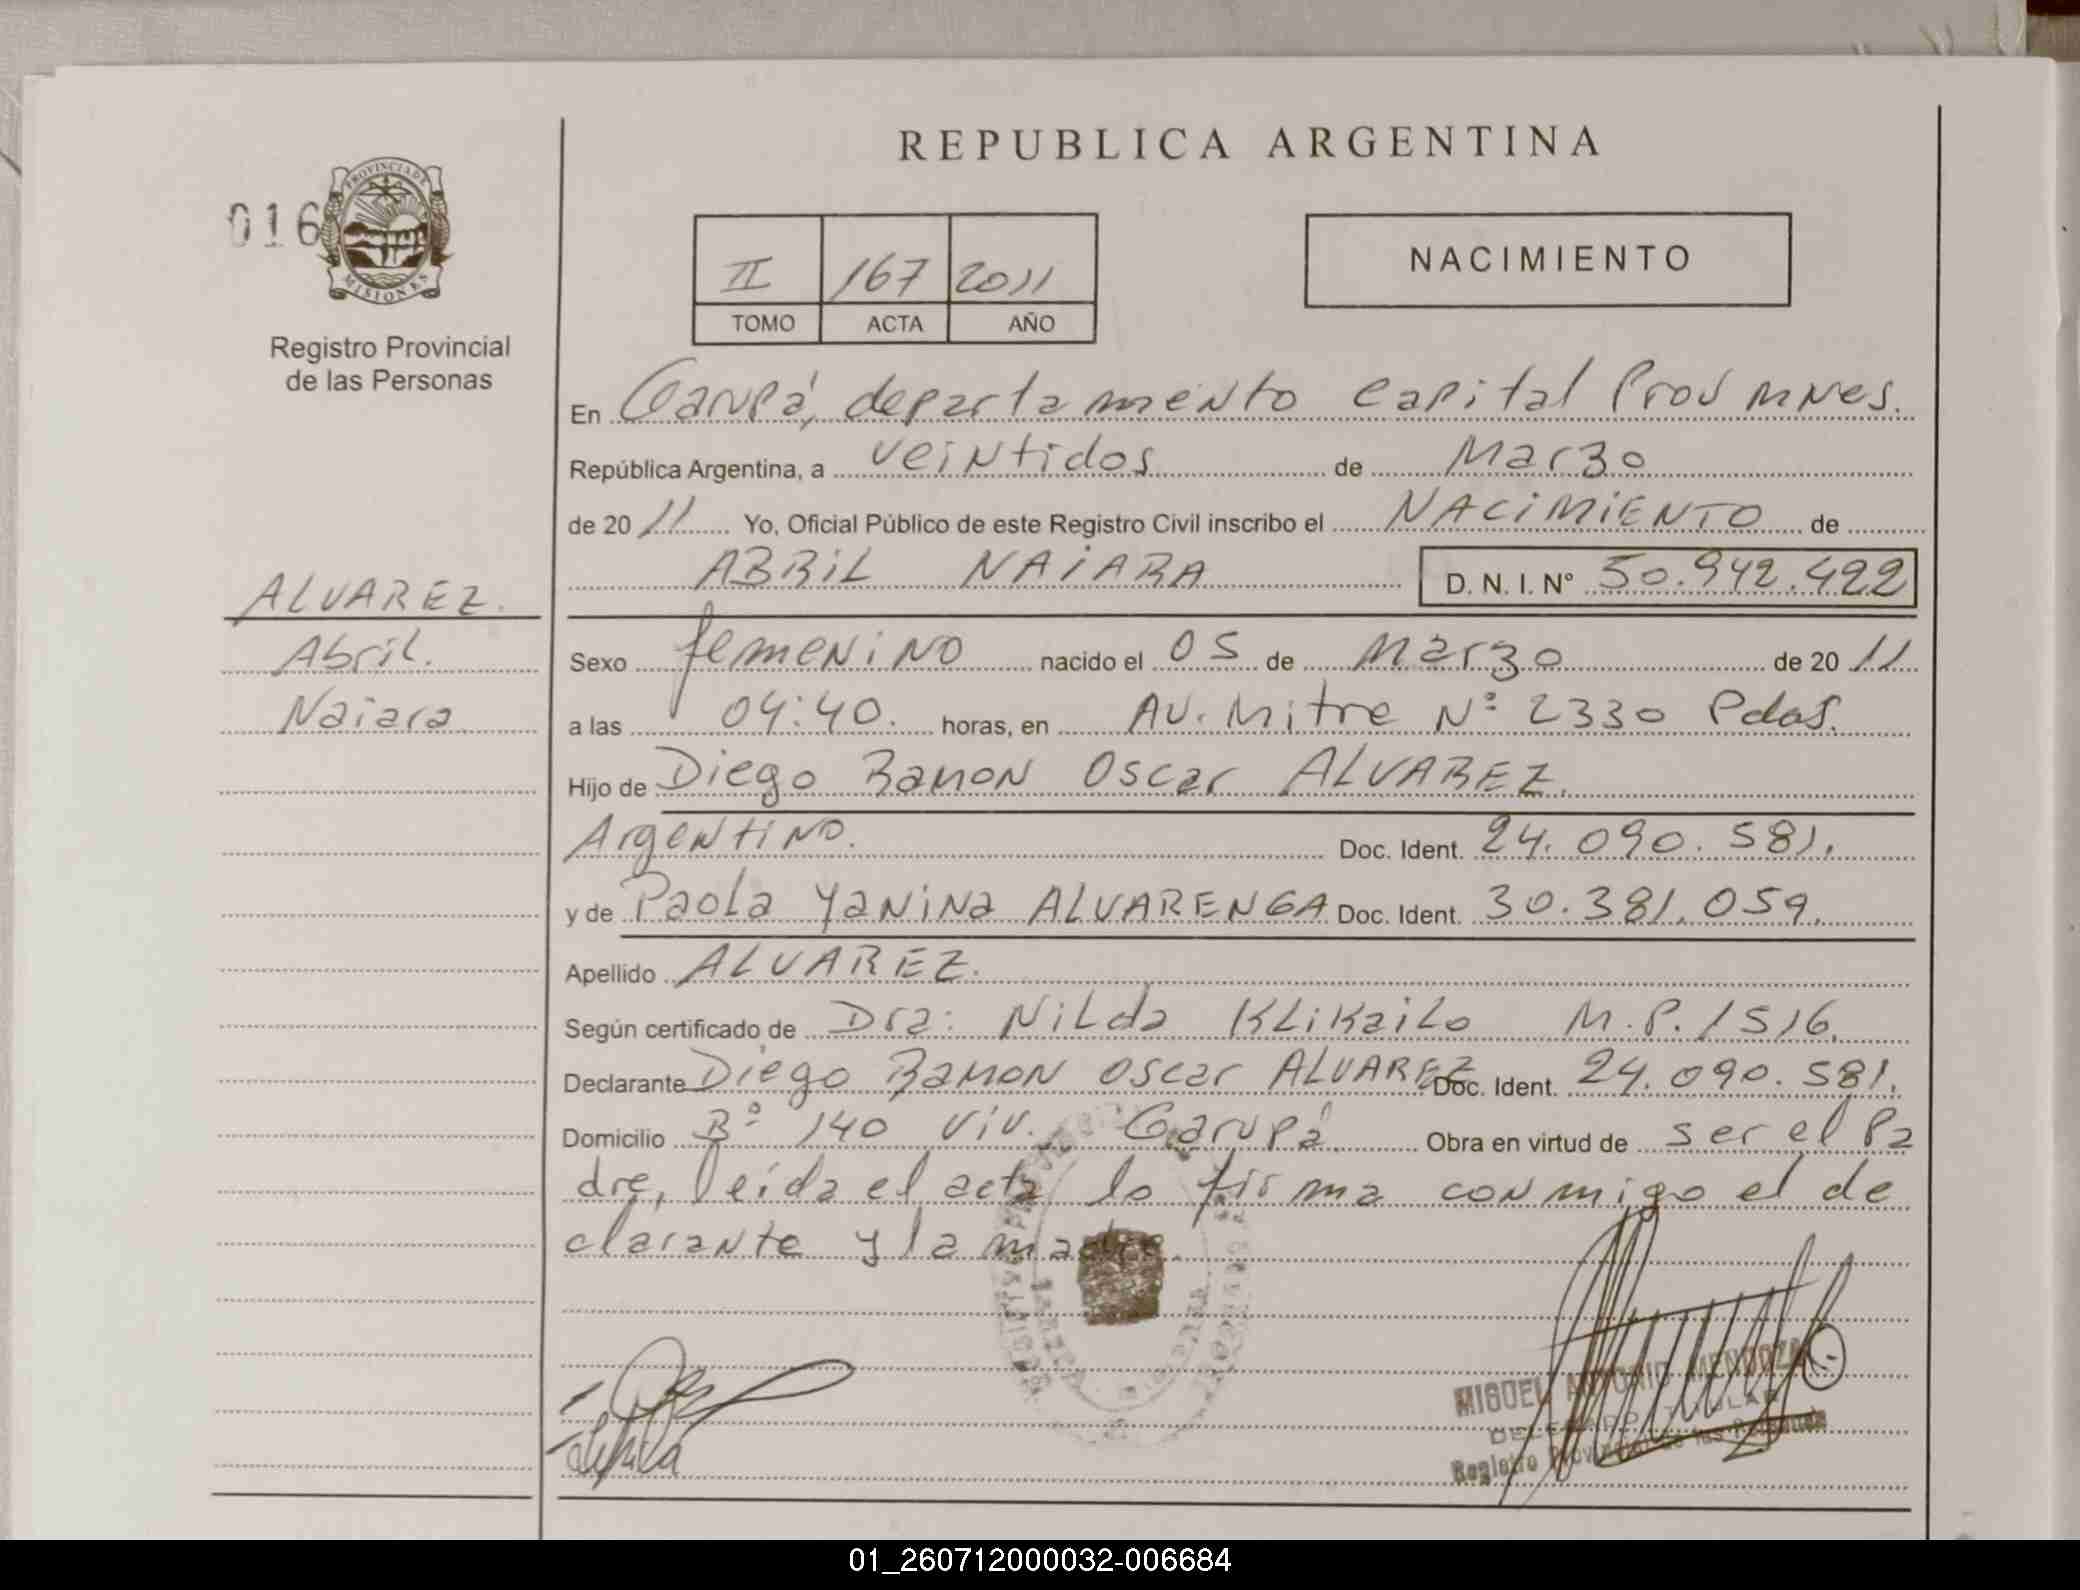 REPUBLICA ARGENTINA
016
PROVINCIA DE
MISIONES
Registro Provincial
de las Personas
II 167 2011
TOMO ACTA AÑO
NACIMIENTO
En Garupá, departamento Capital Prov Mnes.
República Argentina, a veintidos de Marzo
de 2011 Yo, Oficial Público de este Registro Civil inscribo el NACIMIENTO de
ABRIL NAIARA D. N. I. Nº 50.942.422
ALVAREZ.
Abril.
Naiara
Sexo femenino nacido el 05 de Marzo de 2011
a las 04:40. horas, en AV. Mitre Nº 2330 Pdas.
Hijo de Diego Ramon Oscar ALVAREZ.
Argentino. Doc. Ident. 24.090.581.
y de Paola Yanina ALVARENGA Doc. Ident. 30.381.059.
Apellido ALVAREZ.
Según certificado de Dra: Nilda Klikailo M.P. 1516.
Declarante Diego Ramon Oscar ALVAREZ Doc. Ident. 24.090.581.
Domicilio Bº 140 Viv. Garupá Obra en virtud de ser el Pa
dre, leída el acta lo firma conmigo el de
clarante y la madre.
MIGUEL ANTONIO MENDOZA
DELEGADO TITULAR
Registro Provincial de las Personas
01_260712000032-006684